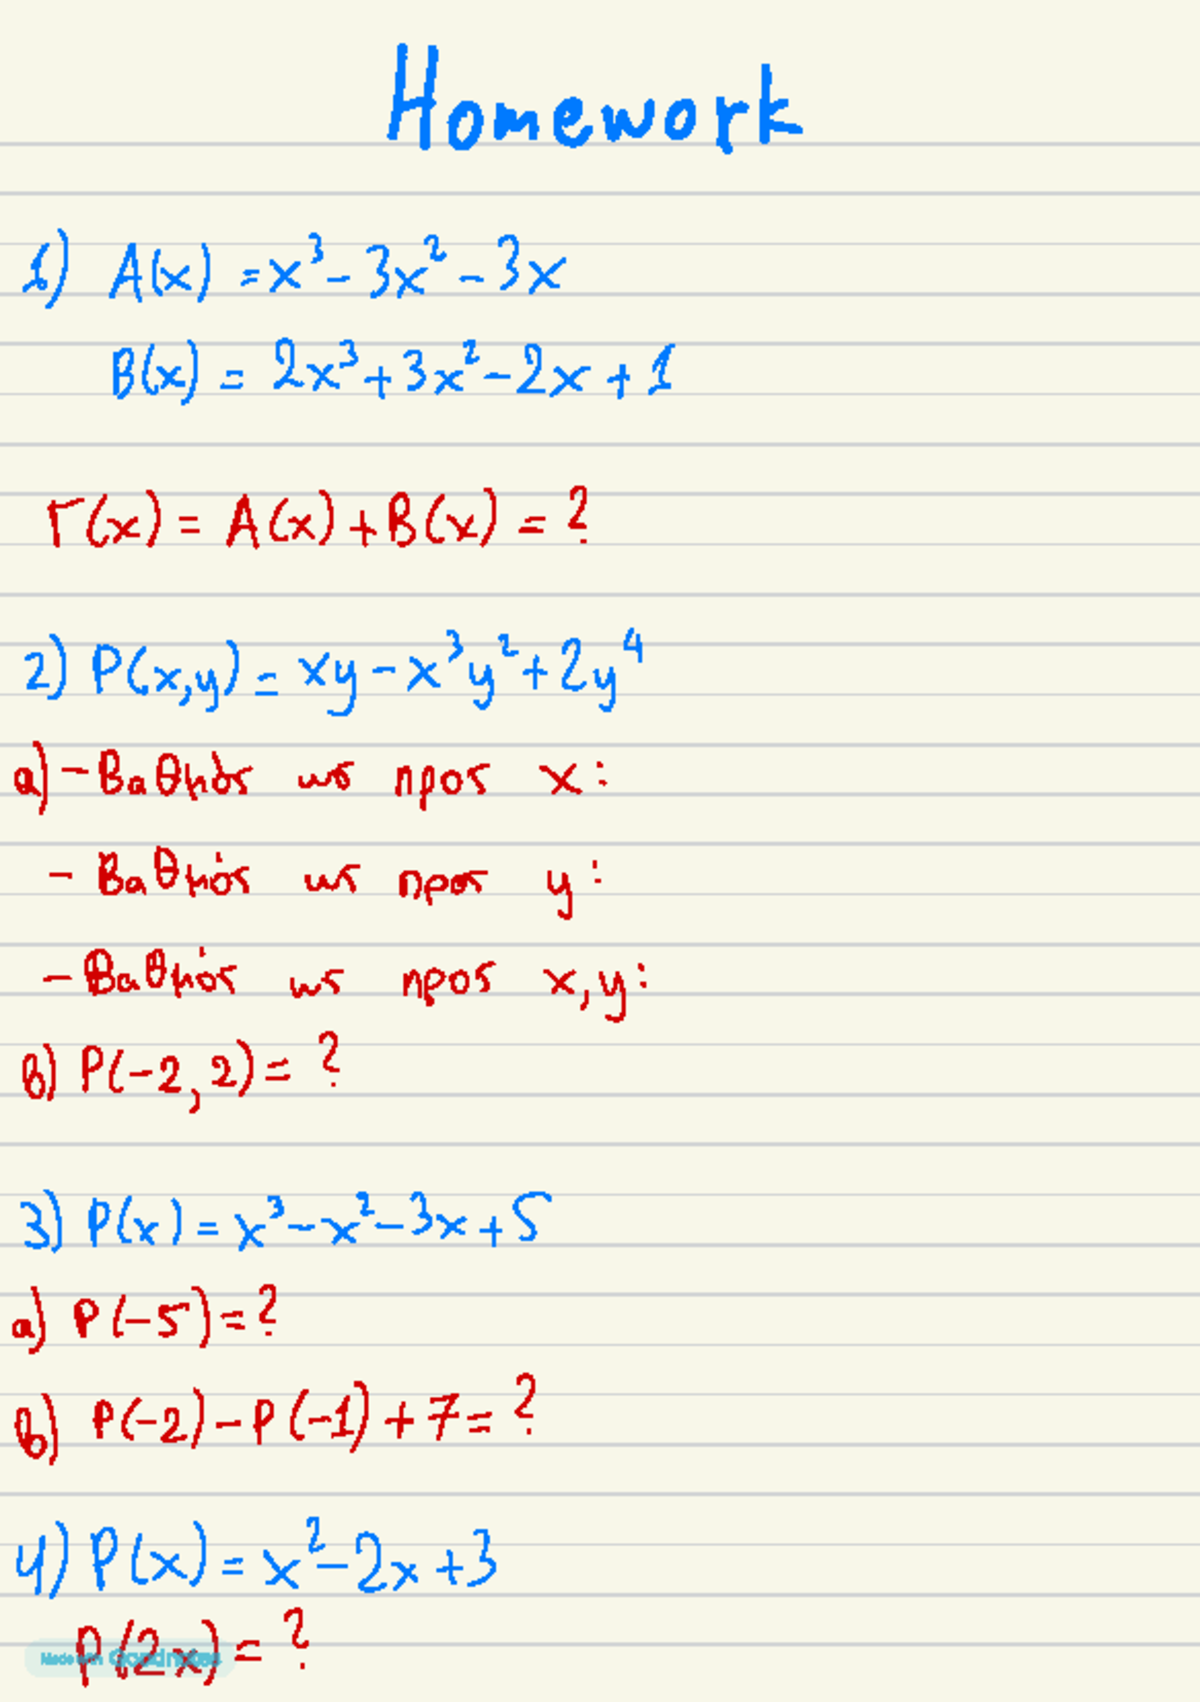 Homework
1) A(x) = x³ - 3x² - 3x
B(x) = 2x³ + 3x² - 2x + 1
Γ(x) = A(x) + B(x) = ?
2) P(x,y) = xy - x³y² + 2y⁴
α) - Βαθμός ως προς x:
- Βαθμός ως προς y:
- Βαθμός ως προς x,y:
β) P(-2,2) = ?
3) P(x) = x³ - x² - 3x + 5
α) P(-5) = ?
β) P(-2) - P(-1) + 7 = ?
4) P(x) = x² - 2x + 3
P(2x) = ?
Made with Goodnotes